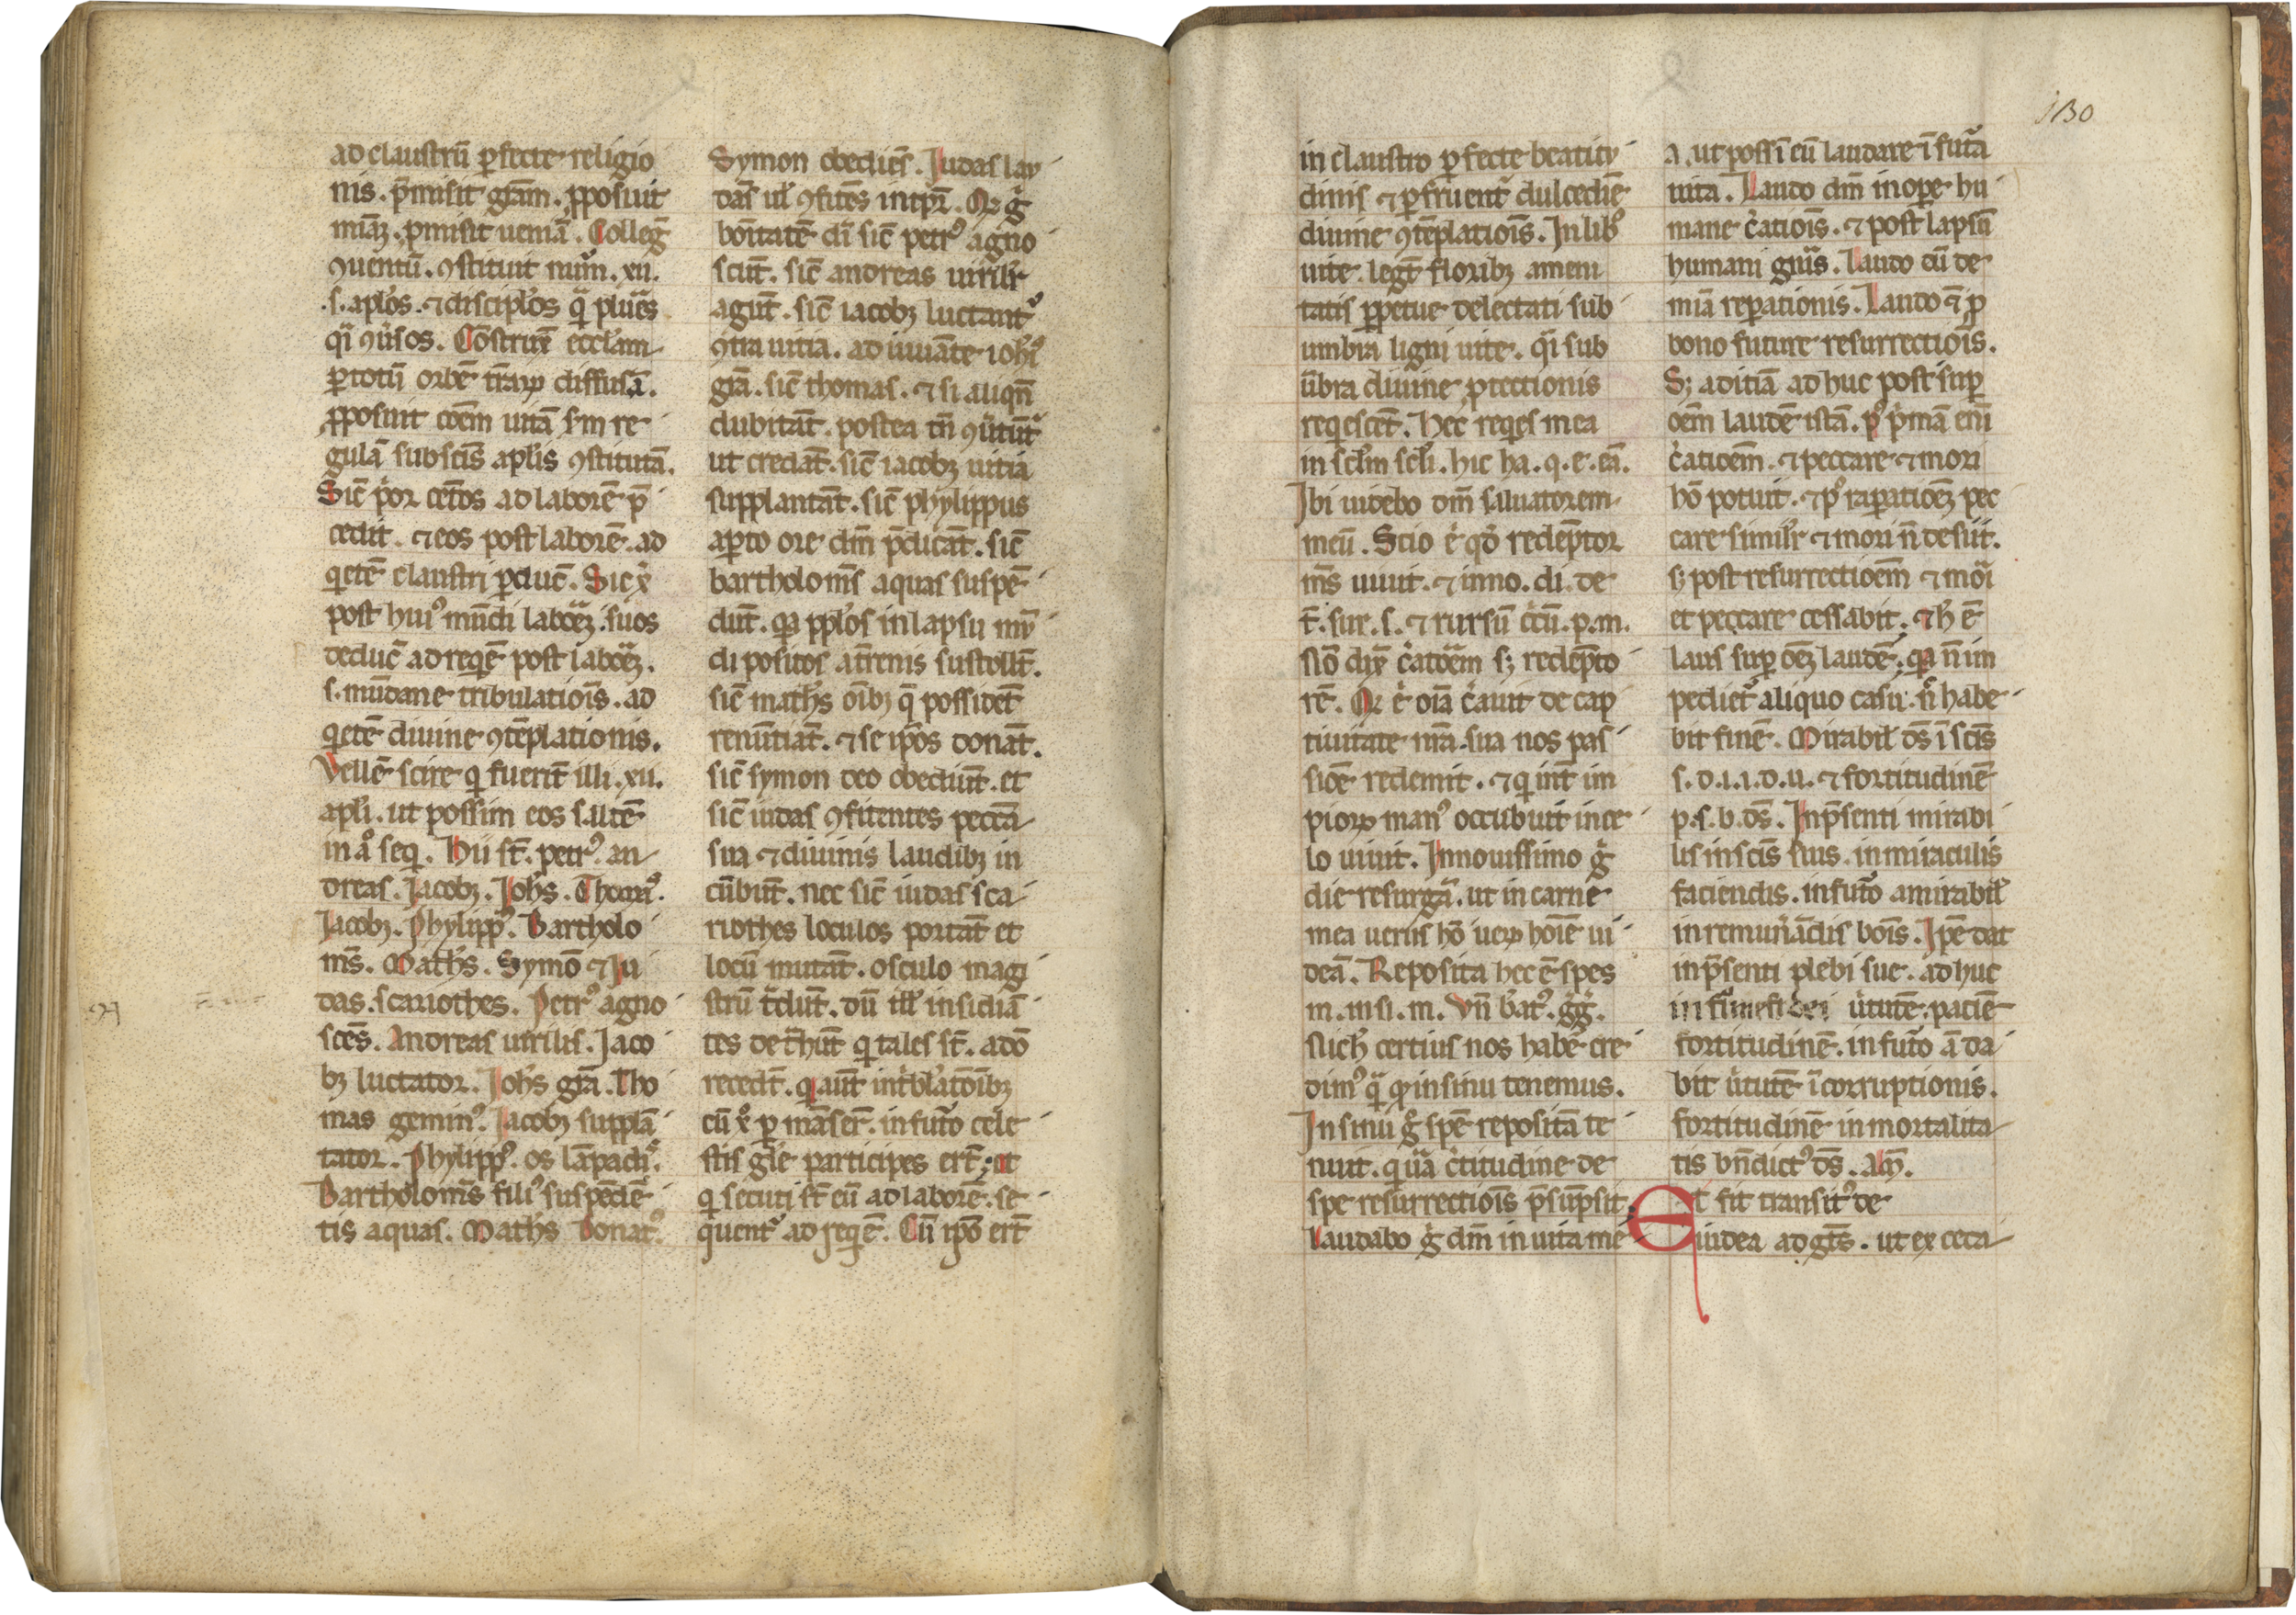 ad claustrũ ꝑfecte religio
nis. p̃misit grãm. ꝓposuit
miãꝫ. ꝓmisit ueniã. Colleg̃
ꝯuentũ. ꝯstituit nuͫm. xii.
.s. apl'os. ⁊ disciplos qͣ pluͣes
qͣi ꝯũsos. Cõstruxͭ eccl'am
ꝑ totũ orbẽ tr̃aꝝ diffusã.
ꝓposuit cõem uitã sm re
gulã sub scĩs apl'is ꝯstitutã.
Sic̃ pͥor cet̃os ad laborẽ p̃
cedit. ⁊ eos post laborẽ ad
qͥetẽ claustri ꝑduc̃. Sic xͥ
post huiꝰ mũdi laboͣeꝫ. suos
deduc̃ ad reqͥẽ post laboͣeꝫ.
s. mũdane tribulatiois̃. ad
qͥetẽ diuine ꝯtẽplationis.
Vellẽ scire qͥ fuerĩt illi. xii.
apl'i. ut possim eos saltẽ
in aͦ seqͥ. Hii st̃. petrꝰ. an
dreas. Jacobꝫ. Joh's. Thomꝰ.
Jacobꝫ. Phylippꝰ. Bartholo
ms̃. Math's. Symõ ⁊ Ju
das. scariothes. Petrꝰ agno
scẽs. Andreas uirilis. Jaco
bꝫ luctator. Joh's gr̃a. Tho
mas geminꝰ. Jacobꝫ supplã
tator. Phylippꝰ. os lãpadiꝰ.
Bartholoms̃ filiꝰ suspẽdẽ
tis aquas. Math's donatꝰ.
Symon obediẽs. Judas lau
dãs ul' ꝯfitẽs int̃pͣ. Qꝛ gͥ
bonitatẽ di sic̃ petrꝰ agno
scũt. sic̃ andreas uirilr̃
agũt. sic̃ iacobꝫ luctantᷣ
ꝯtra uitia. adiuuãte ioh'i
grã. sic̃ thomas. ⁊ si aliqñ
dubitãt. postea tñ ꝯũtũtᷣ
ut credãt. sic̃ iacobꝫ uitia
supplantãt. sic̃ phylippus
aꝑto ore dm̃ p̃dicãt. sic̃
bartholoms̃ aquas suspẽ
dũt. qꝛ ppl'os in lapsu mũ
di positos at̃renis sustollt̃.
sic̃ math's oĩbꝫ q̃ possidẽt
renũtiãt. ⁊ se ip̃os donãt.
sic̃ symon deo obediũt. et
sic̃ iudas ꝯfitentes peccã
sua ⁊ diuinis laudibꝫ in
cũbũt. nec sic̃ iudas sca
riothes loculos portãt et
locũ mutãt. osculo magi
strũ tͣdũt. dũ ill' insidiã
tes det̃hũt qͥ tales st̃. a dõ
recedt̃. qͥ aũt
cũ xͦ ꝑmãserͭ. in futo cele
stis gl'e participes ert̃. et
qͥ secuti st̃ eũ ad laborẽ. se
quentᷣ ad reqͥẽ. Cũ ip̃o ert̃
in claustro ꝑfecte beatitu
dinis ⁊ ꝑfruentᷣ dulcediẽ
diuine ꝯtẽplatiois̃. In libͦ
uite. legt̃ floribꝫ ameni
tatis ꝑpetue delectati sub
umbra ligni uite. qͣi sub
ũbra diuine ꝓtectionis
reqͥescẽt. Hec reqͥes mea
in scl'm scl'i. hic ha. q. e. eã.
Ibi uidebo dm̃ saluatorem
meũ. Scio .e. qd̃ redẽptor
ms̃ uiuit. ⁊ in no. di. de
t̃. sur. s. ⁊ rursũ c̃cũ. p. m.
Nõ dix̃ c̃atoͣem sꝫ redẽpto
rẽ. Qꝛ .e. oĩa c̃auit de cap
tiuitate nr̃a. sua nos pas
siõe redemit. ⁊ qͥ int̃ im
pioꝝ manꝰ occubuit in ce
lo uiuit. In nouissimo gͥ
die resurgã. ut in carne
mea uerus hõ ueꝝ hoĩe ui
deã. Reposita hec ẽ spes
m. in si. m. Vñ b'atꝰ. gg̃.
Nich' certius nos habẽ cre
dimꝰ qͣ qd̃ in sinu tenemus.
In sinu gͦ spẽ repositã te
nuit. qͣ uã c̃titudine de
spe resurrectiois̃ p̃sũpsit.
Laudabo gͦ dm̃ in uita me
a. ut possĩ eũ laudare ĩ futã
uita. Laudo dm̃ in oꝑe hu
mane c̃atiois̃. ⁊ post lapsũ
humani gñis. Laudo eũ de
miã reꝑationis. Laudo ⁊ ꝓ
bono future resurrectiois̃.
Sꝫ aditiã adhuc post suꝑ
oẽm laudẽ istã. pꝰ pͥmã eni
c̃atioẽm. ⁊ peccare ⁊ mori
hõ potuit. ⁊ pꝰ raꝑatioẽꝫ pec
care similr̃ ⁊ mori ñ desiit.
sꝫ post resurrectioẽm ⁊ mori
et peccare cessabit. ⁊ h' ẽ
laus suꝑ oẽꝫ laudẽ. qꝛ ñ im
pedietᷣ aliquo casu. ñ habe
bit finẽ. Mirabil' ds̃ ĩ scĩs
s. d. i. i. d. u. ⁊ fortitudinẽ
p. s. b. ds̃. In p̃senti mirabi
lis in scĩs suis. in miraculis
faciendis. in futo a mirabil'
in remunãdis bois̃. Ip̃e dat
in p̃senti plebi sue. adhuc
ũtutẽ. paciẽ
fortitudinẽ. in futo ã da
bit ũtutẽ ĩcorruptionis.
fortitudinẽ inmortalita
tis bñdictꝰ ds̃. Am̃.
Et fit transitꝰ de
iudea ad gẽts̃. ut ex ceca
130